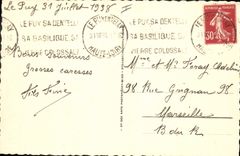 Le Puy 31 Juillet 1938
LE PUY. SA DENTELLE
SA BASILIQUE. SA
VIERGE COLOSSALE
LE PUY. SA DENTELLE
SA BASILIQUE. SA
VIERGE COLOSSALE
LE PUY
HAUTE-LOIRE
30
Bons Souvenirs
Grosses caresses
Mme et Mr
98 Rue Grignan 98.
Marseille
B du R